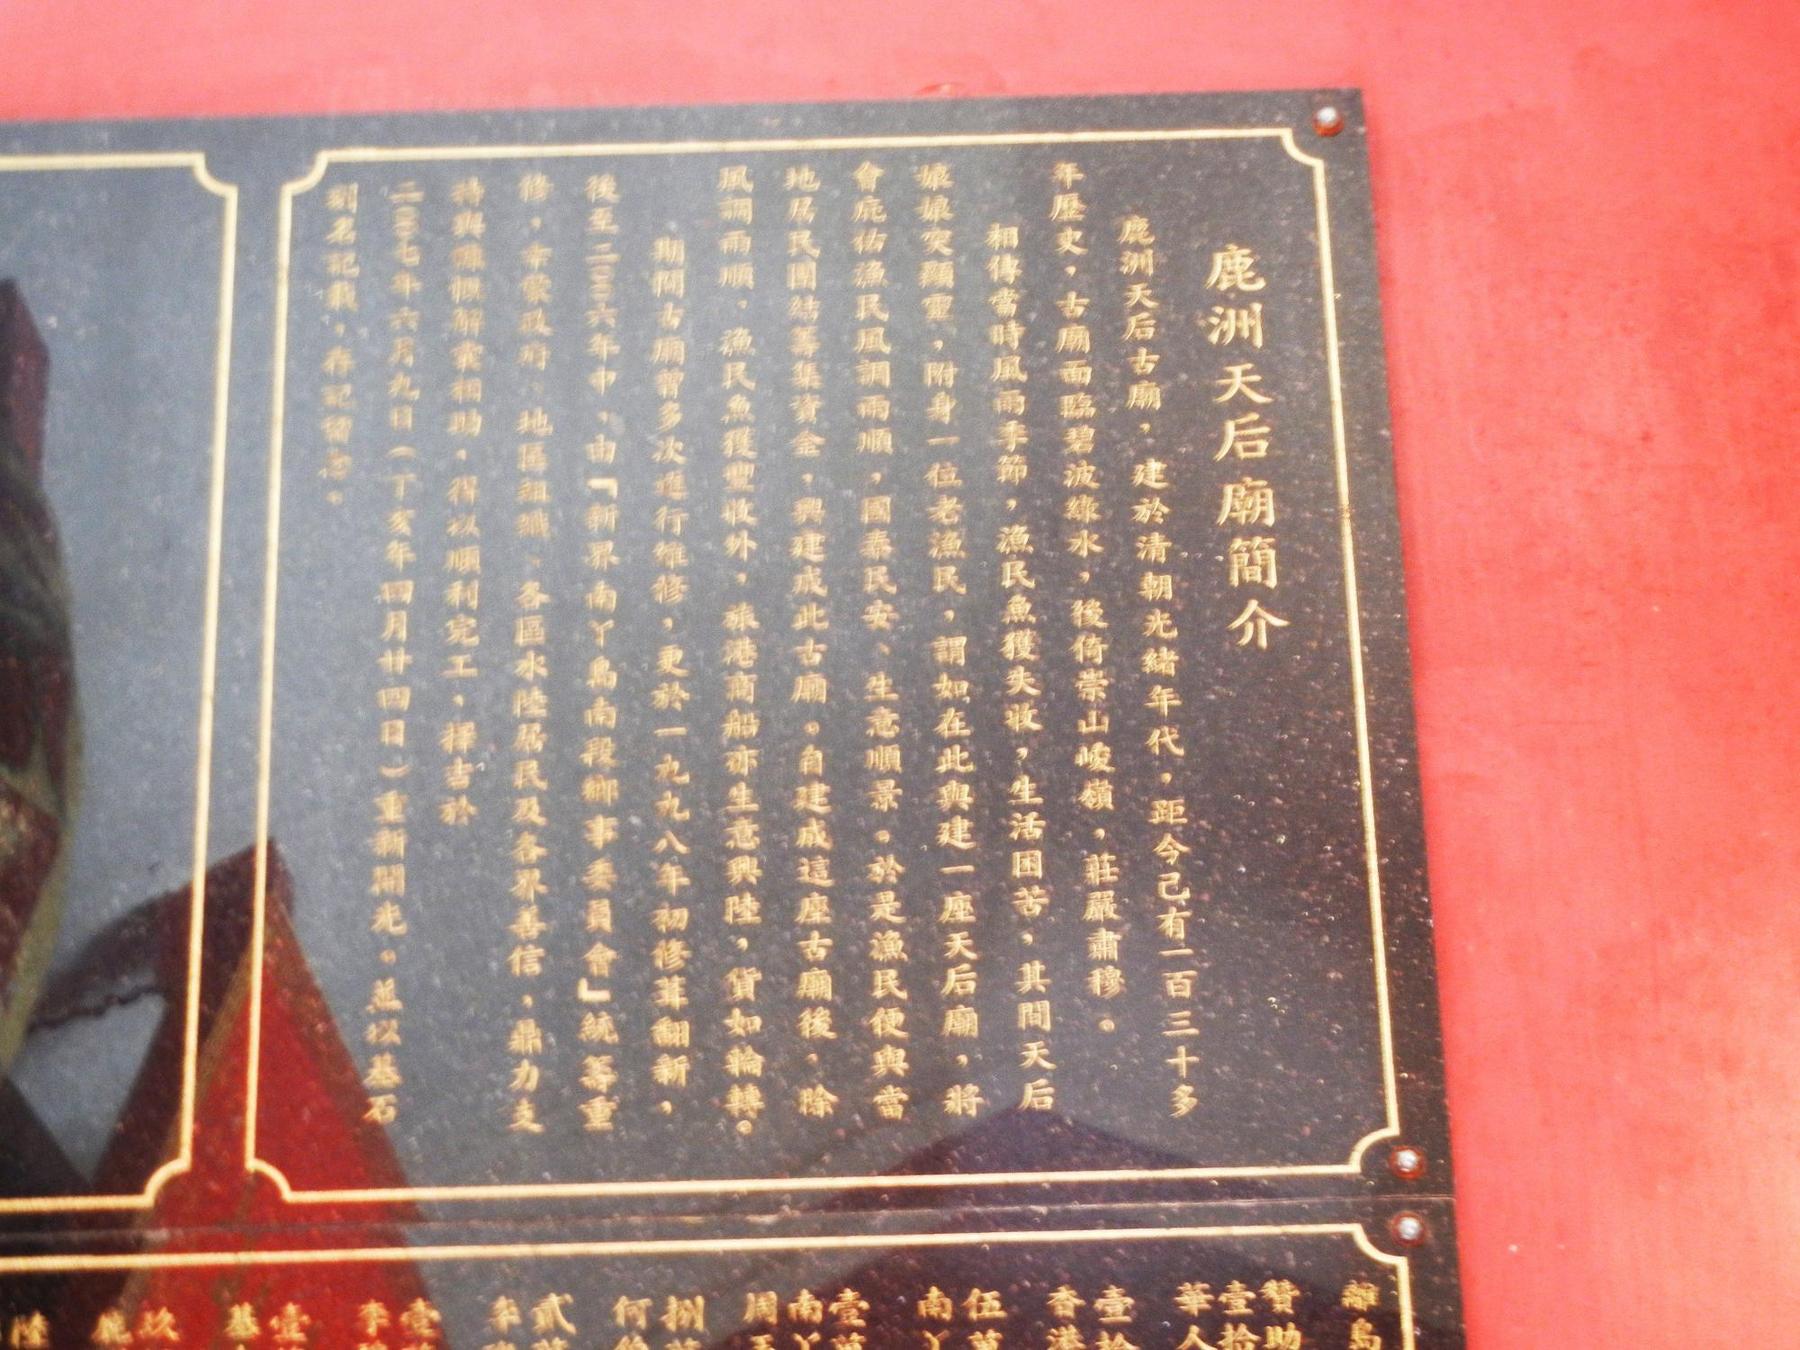 鹿洲天后廟簡介
鹿洲天后古廟，建於清朝光緒年代，距今己有一百三十多
年歷史，古廟面臨碧波綠水，後倚崇山峻嶺，莊嚴肅穆。
相傳當時風雨季節，漁民魚獲失收，生活困苦，其間天后
娘娘突顯靈，附身一位老漁民，謂如在此興建一座天后廟，將
會庇佑漁民風調雨順，國泰民安、生意順景。於是漁民便與當
地居民團結籌集資金，興建成此古廟。自建成這座古廟後，除
風調雨順，漁民魚獲豐收外，旅港商船亦生意興陸，貨如輪轉。
期間古廟曾多次進行維修，更於一九九八年初修葺翻新，
後至二００六年中，由「新界南丫島南段鄉事委員會」統籌重
修，幸蒙政府、地區組織、各區水陸居民及各界善信，鼎力支
持與慷慨解囊相助，得以順利完工，擇吉於
二００七年六月九日（丁亥年四月廿四日）重新開光。並以基石
刻名記載，存記留念。
離島
贊助
壹拾
華人
壹拾
香港
伍萬
南丫
壹萬
南丫
周
捌
何
貳
李
壹
李
壹
基
玖
鹿
陸